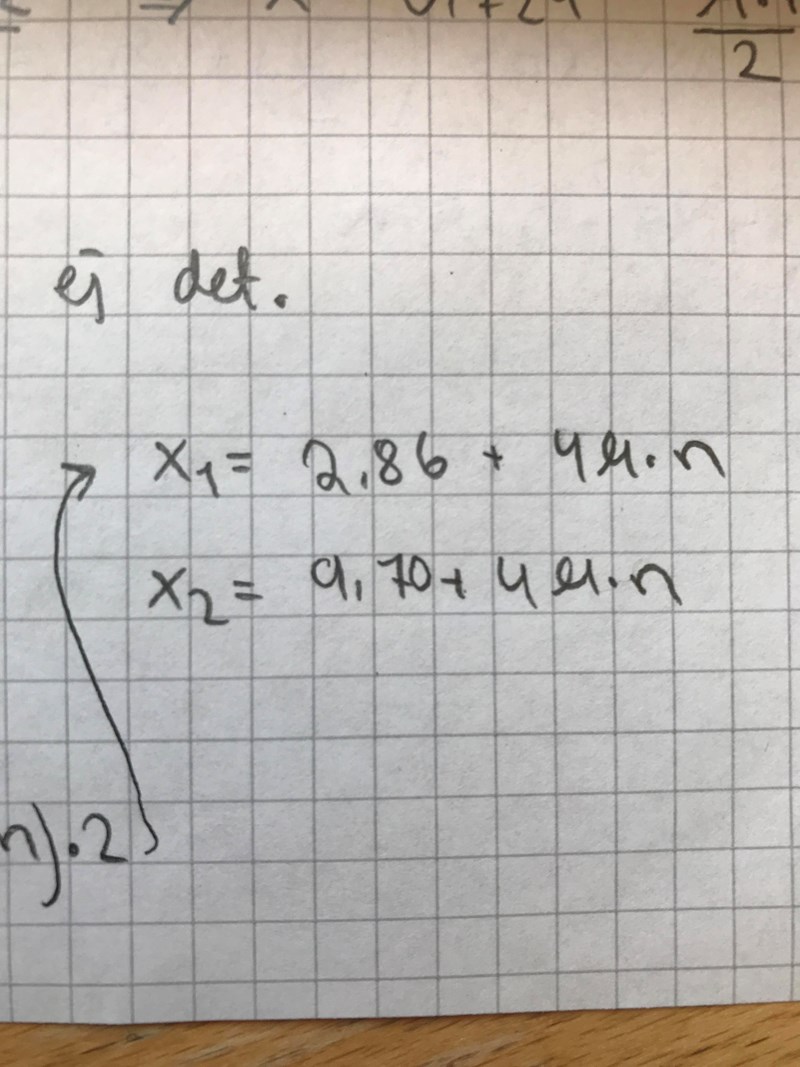 2
ej det.
x₁ = 2,86 + 4π·n
x₂ = 9,70 + 4π·n
n)·2